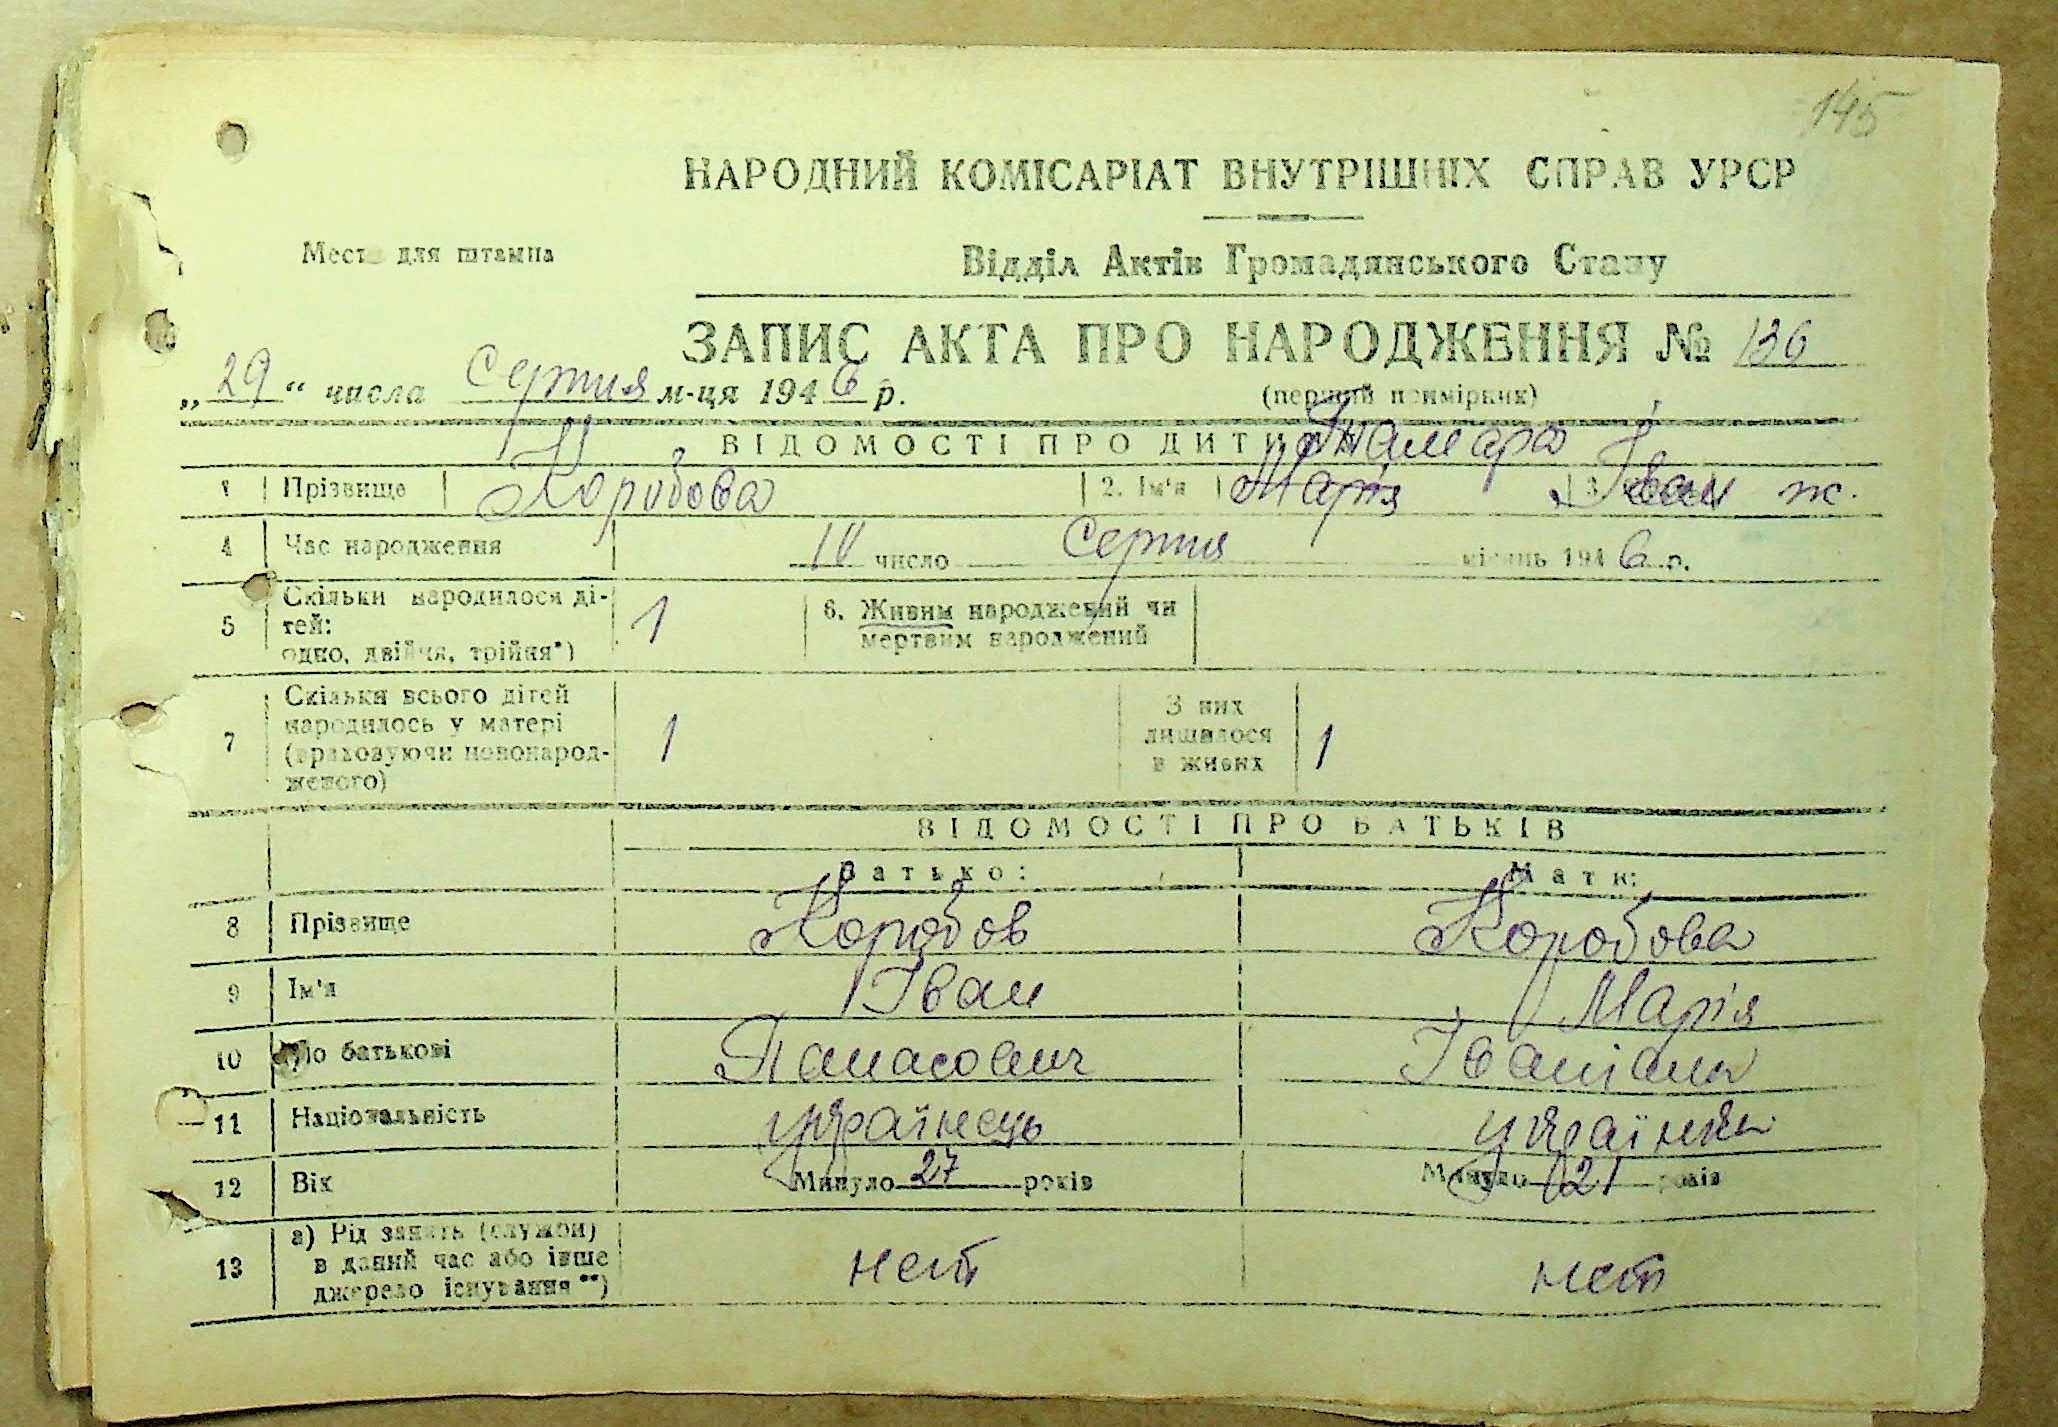 145
НАРОДНИЙ КОМІСАРІАТ ВНУТРІШНІХ СПРАВ УРСР
Место для штампа
Відділ Актів Громадянського Стану
ЗАПИС АКТА ПРО НАРОДЖЕННЯ № 136
„29“ числа Серпня м-ця 1946 р.
(перший примірник)
ВІДОМОСТІ ПРО ДИТИНУ Тамара
1 Прізвище Коробова 2. Ім'я Марія 3. Іван ж.
4 Час народження 10 число Серпня місяць 1946 р.
5 Скільки народилося ді-
тей:
одно, двійня, трійня*) 1
6. Живим народжений чи
мертвим народжений
7 Скільки всього дітей
народилось у матері
(враховуючи новонарод-
женого) 1
З них
лишилося
в живих 1
ВІДОМОСТІ ПРО БАТЬКІВ
Батько: Мати:
8 Прізвище Коробов Коробова
9 Ім'я Іван Марія
10 По батькові Панасович Іванівна
11 Національність українець українка
12 Вік Минуло 27 років Минуло 21 років
13 а) Рід занять (служби)
в даний час або інше
джерело існування**) нет нет